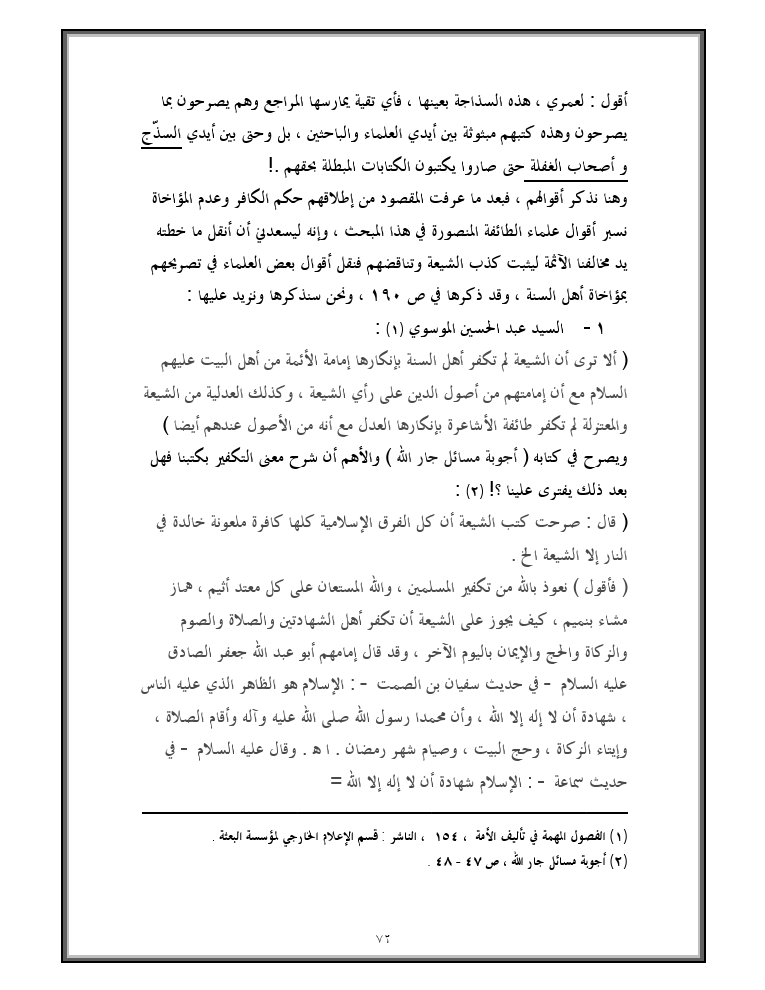 أقول : لعمري ، هذه السذاجة بعينها ، فأي تقية يمارسها المراجع وهم يصرحون بما
يصرحون وهذه كتبهم مبثوثة بين أيدي العلماء والباحثين ، بل وحتى بين أيدي السذّج
و أصحاب الغفلة حتى صاروا يكتبون الكتابات المبطلة بحقهم .!
وهنا نذكر أقوالهم ، فبعد ما عرفت المقصود من إطلاقهم حكم الكافر وعدم المؤاخاة
نسبر أقوال علماء الطائفة المنصورة في هذا المبحث ، وإنه ليسعدني أن أنقل ما خطته
يد مخالفنا الآثمة ليثبت كذب الشيعة وتناقضهم فنقل أقوال بعض العلماء في تصريحهم
بمؤاخاة أهل السنة ، وقد ذكرها في ص ١٩٠ ، ونحن سنذكرها ونزيد عليها :
١ - السيد عبد الحسين الموسوي (١) :
( ألا ترى أن الشيعة لم تكفر أهل السنة بإنكارها إمامة الأئمة من أهل البيت عليهم
السلام مع أن إمامتهم من أصول الدين على رأي الشيعة ، وكذلك العدلية من الشيعة
والمعتزلة لم تكفر طائفة الأشاعرة بإنكارها العدل مع أنه من الأصول عندهم أيضا )
ويصرح في كتابه ( أجوبة مسائل جار الله ) والأهم أن شرح معنى التكفير بكتبنا فهل
بعد ذلك يفترى علينا ؟! (٢) :
( قال : صرحت كتب الشيعة أن كل الفرق الإسلامية كلها كافرة ملعونة خالدة في
النار إلا الشيعة الخ .
( فأقول ) نعوذ بالله من تكفير المسلمين ، والله المستعان على كل معتد أثيم ، هماز
مشاء بنميم ، كيف يجوز على الشيعة أن تكفر أهل الشهادتين والصلاة والصوم
والزكاة والحج والإيمان باليوم الآخر ، وقد قال إمامهم أبو عبد الله جعفر الصادق
عليه السلام - في حديث سفيان بن الصمت - : الإسلام هو الظاهر الذي عليه الناس
، شهادة أن لا إله إلا الله ، وأن محمدا رسول الله صلى الله عليه وآله وأقام الصلاة ،
وإيتاء الزكاة ، وحج البيت ، وصيام شهر رمضان . ا ه . وقال عليه السلام - في
حديث سماعة - : الإسلام شهادة أن لا إله إلا الله =
(١) الفصول المهمة في تأليف الأمة ، ١٥٤ ، الناشر : قسم الإعلام الخارجي لمؤسسة البعثة .
(٢) أجوبة مسائل جار الله ، ص ٤٧ - ٤٨ .
٧٢